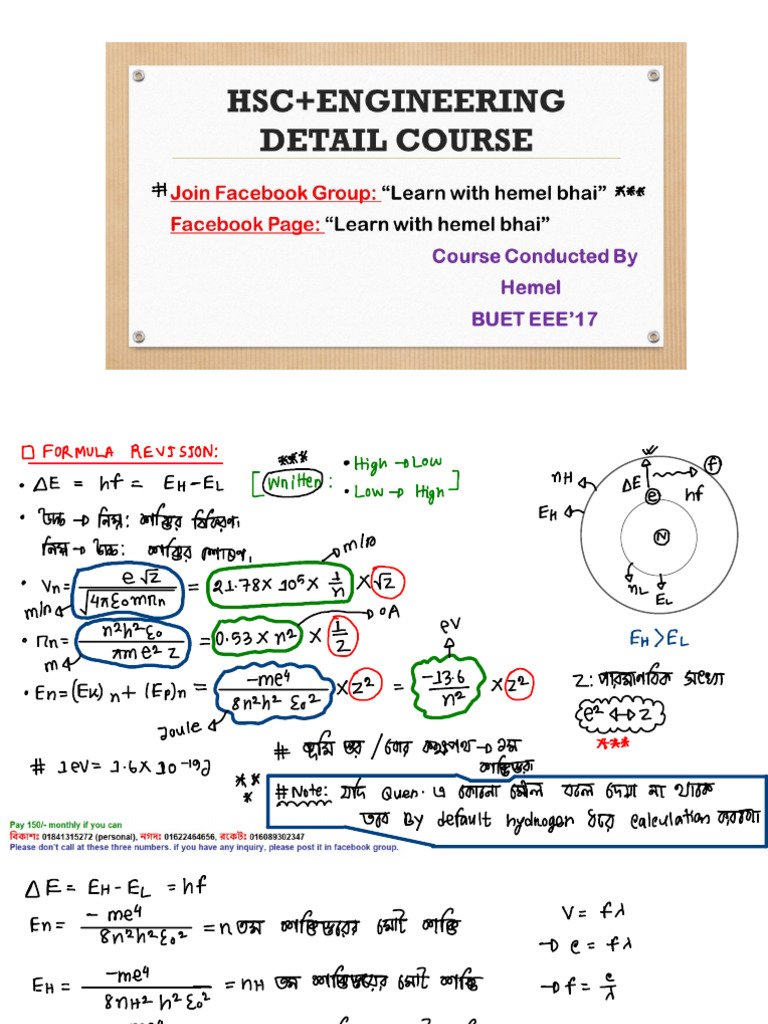 HSC+ENGINEERING
DETAIL COURSE
# Join Facebook Group: “Learn with hemel bhai” ***
Facebook Page: “Learn with hemel bhai”
Course Conducted By
Hemel
BUET EEE’17
FORMULA REVISION:
• ΔE = hf = EH-EL [Written: • High → Low • Low → High] ***
• উচ্চ → নিম্ন: শক্তির বিকিরণ
নিম্ন → উচ্চ: শক্তির শোষণ
• Vn = e√z / √4πε0mrn = 21.78 × 10^5 × 1/n × √z
m/s
m/s
• rn = n²h²ε0 / πme²z = 0.53 × n² × 1/z
m
oA
• En = (Ek)n + (Ep)n = -me⁴ / 8n²h²ε0² × z² = -13.6 / n² × z²
Joule
eV
nH
EH
ΔE
f
hf
e
N
nL
EL
EH > EL
z: পারমাণবিক সংখ্যা
e² ↔ z
***
# 1eV = 1.6 × 10^-19J
# ভূমি স্তর / বোর কক্ষপথ → ১ম শক্তিস্তর
***
# Note: যদি Quen. এ কোনো মৌল বলে দেয়া না থাকে
তবে By default hydrogen ধরে calculation করবো
Pay 150/- monthly if you can
বিকাশঃ 01841315272 (personal), নগদঃ 01622464656, রকেটঃ 016089302347
Please don't call at these three numbers. if you have any inquiry, please post it in facebook group.
ΔE = EH-EL = hf
En = -me⁴ / 8n²h²ε0² = n তম শক্তিস্তরের মোট শক্তি
V = fλ
→ c = fλ
EH = -me⁴ / 8nH² h² ε0² = nH তম শক্তিস্তরের মোট শক্তি
→ f = c/λ